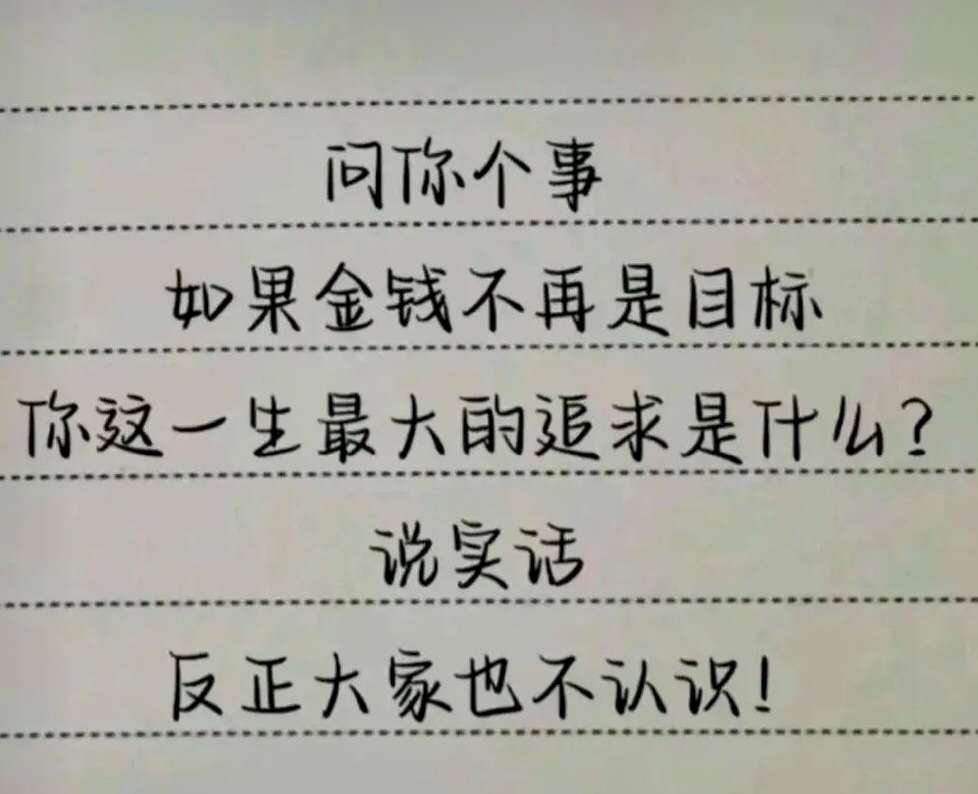 问你个事
如果金钱不再是目标
你这一生最大的追求是什么?
说实话
反正大家也不认识!